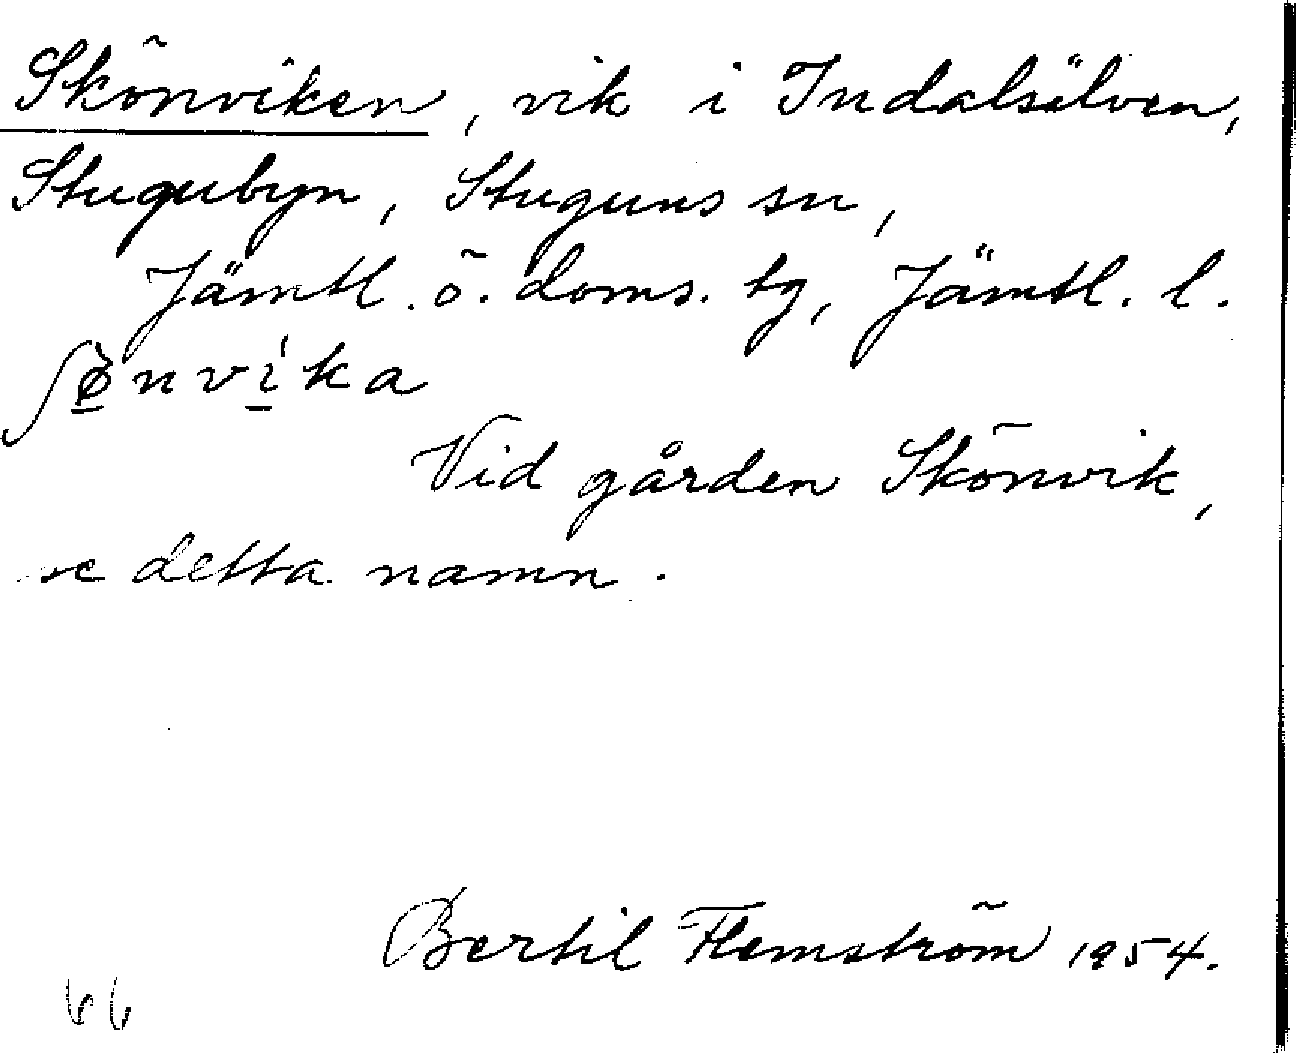 Skönviken, vik i Indalsälven,
Stugubyn, Stuguns sn,
Jämtl. ö. doms. tg, Jämtl. l.
ʃø̠̀nvi̠̍ka
Vid gården Skönvik,
se detta namn.
Bertil Flemström 1954.
66